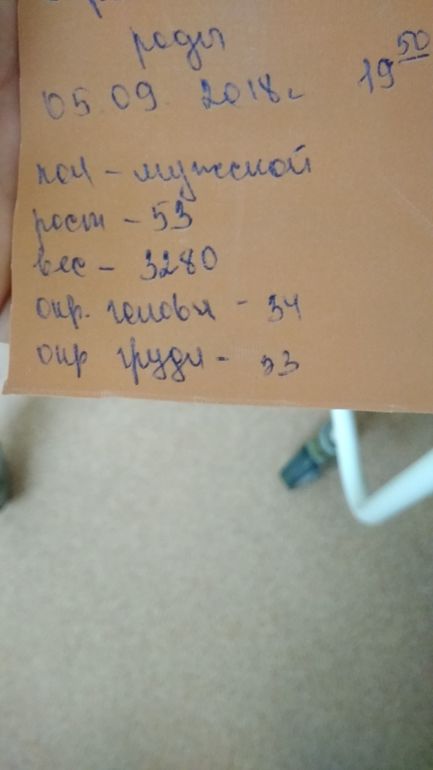 роды
05.09. 2018г 19 50
пол - мужской
рост - 53
вес - 3280
окр. головы - 34
окр груди - 33